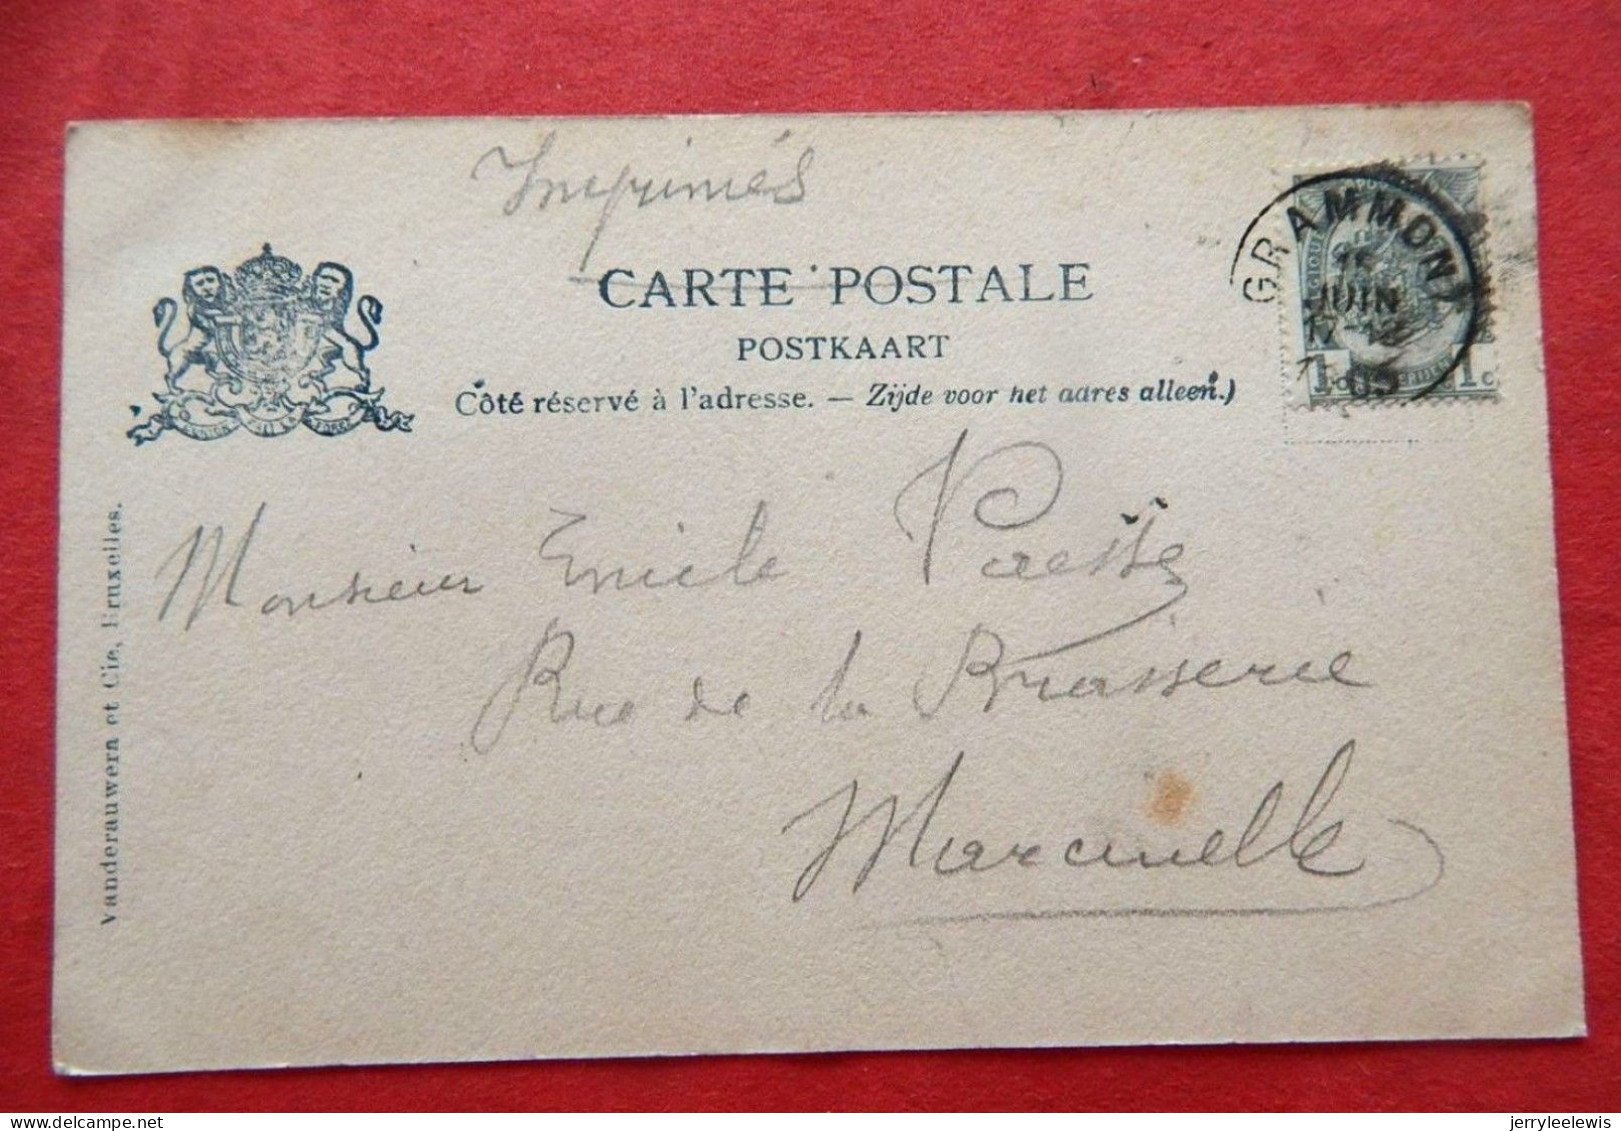 Imprimés
CARTE POSTALE
POSTKAART
Côté réservé à l'adresse. — Zijde voor het adres alleen.)
GRAMMONT
15
JUIN
17-18
05
1c 1c
L'UNION FAIT LA FORCE
Monsieur Emile
Rue de la Brasserie
Marcinelle
Vanderauwera et Cie, Bruxelles.
jerryleelewis